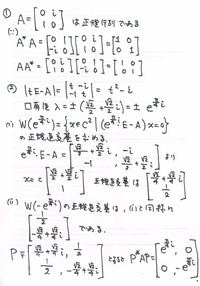 ① A = [0 i
1 0] は正規行列である
(∵)
A*A = [0 1
-i 0] [0 i
1 0] = [1 0
0 1]
AA* = [0 i
1 0] [0 1
-i 0] = [1 0
0 1]
② |tE-A| = |t -i
-1 t| = t² - i
固有値 λ = ± (√2/2 + √2/2 i) = ± e^{π/4 i}
(i) W(e^{π/4 i}) = {x∈C² | (e^{π/4 i}E-A)x=0}
の正規直交基を求める。
e^{π/4 i}E-A = [√2/2 + √2/2 i, -i
-1 √2/2 + √2/2 i] より
x = c [√2/2 + √2/2 i
1] 正規直交基は [√4/4 + √4/4 i
1/2]
(ii) W(-e^{π/4 i}) の正規直交基は、(i)と同様に
[1/2
-√4/4 + √4/4 i] である。
P = [√4/4 + √4/4 i, 1/2
1/2, -√4/4 + √4/4 i] とすると P*AP = [e^{π/4 i}, 0
0, -e^{π/4 i}]